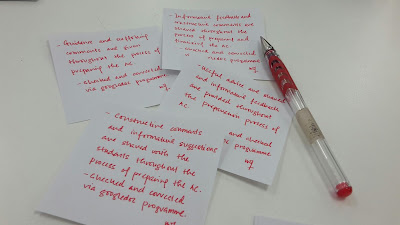 - Guidance and
comments are given
throughout the process of
preparing the AC.
- Checked and corrected
via googledoc programme
- Informative feedback and
constructive comments are
shared throughout the
process of preparing and
the AC.
checked and corrected
programme
Useful advice are shared
and informative feedback
are provided throughout
the preparation process of
AC.
and checked
programme
- Constructive comments
and informative suggestions
are shared with the
students throughout the
process of preparing the AC.
- Checked and corrected
via googledoc programme